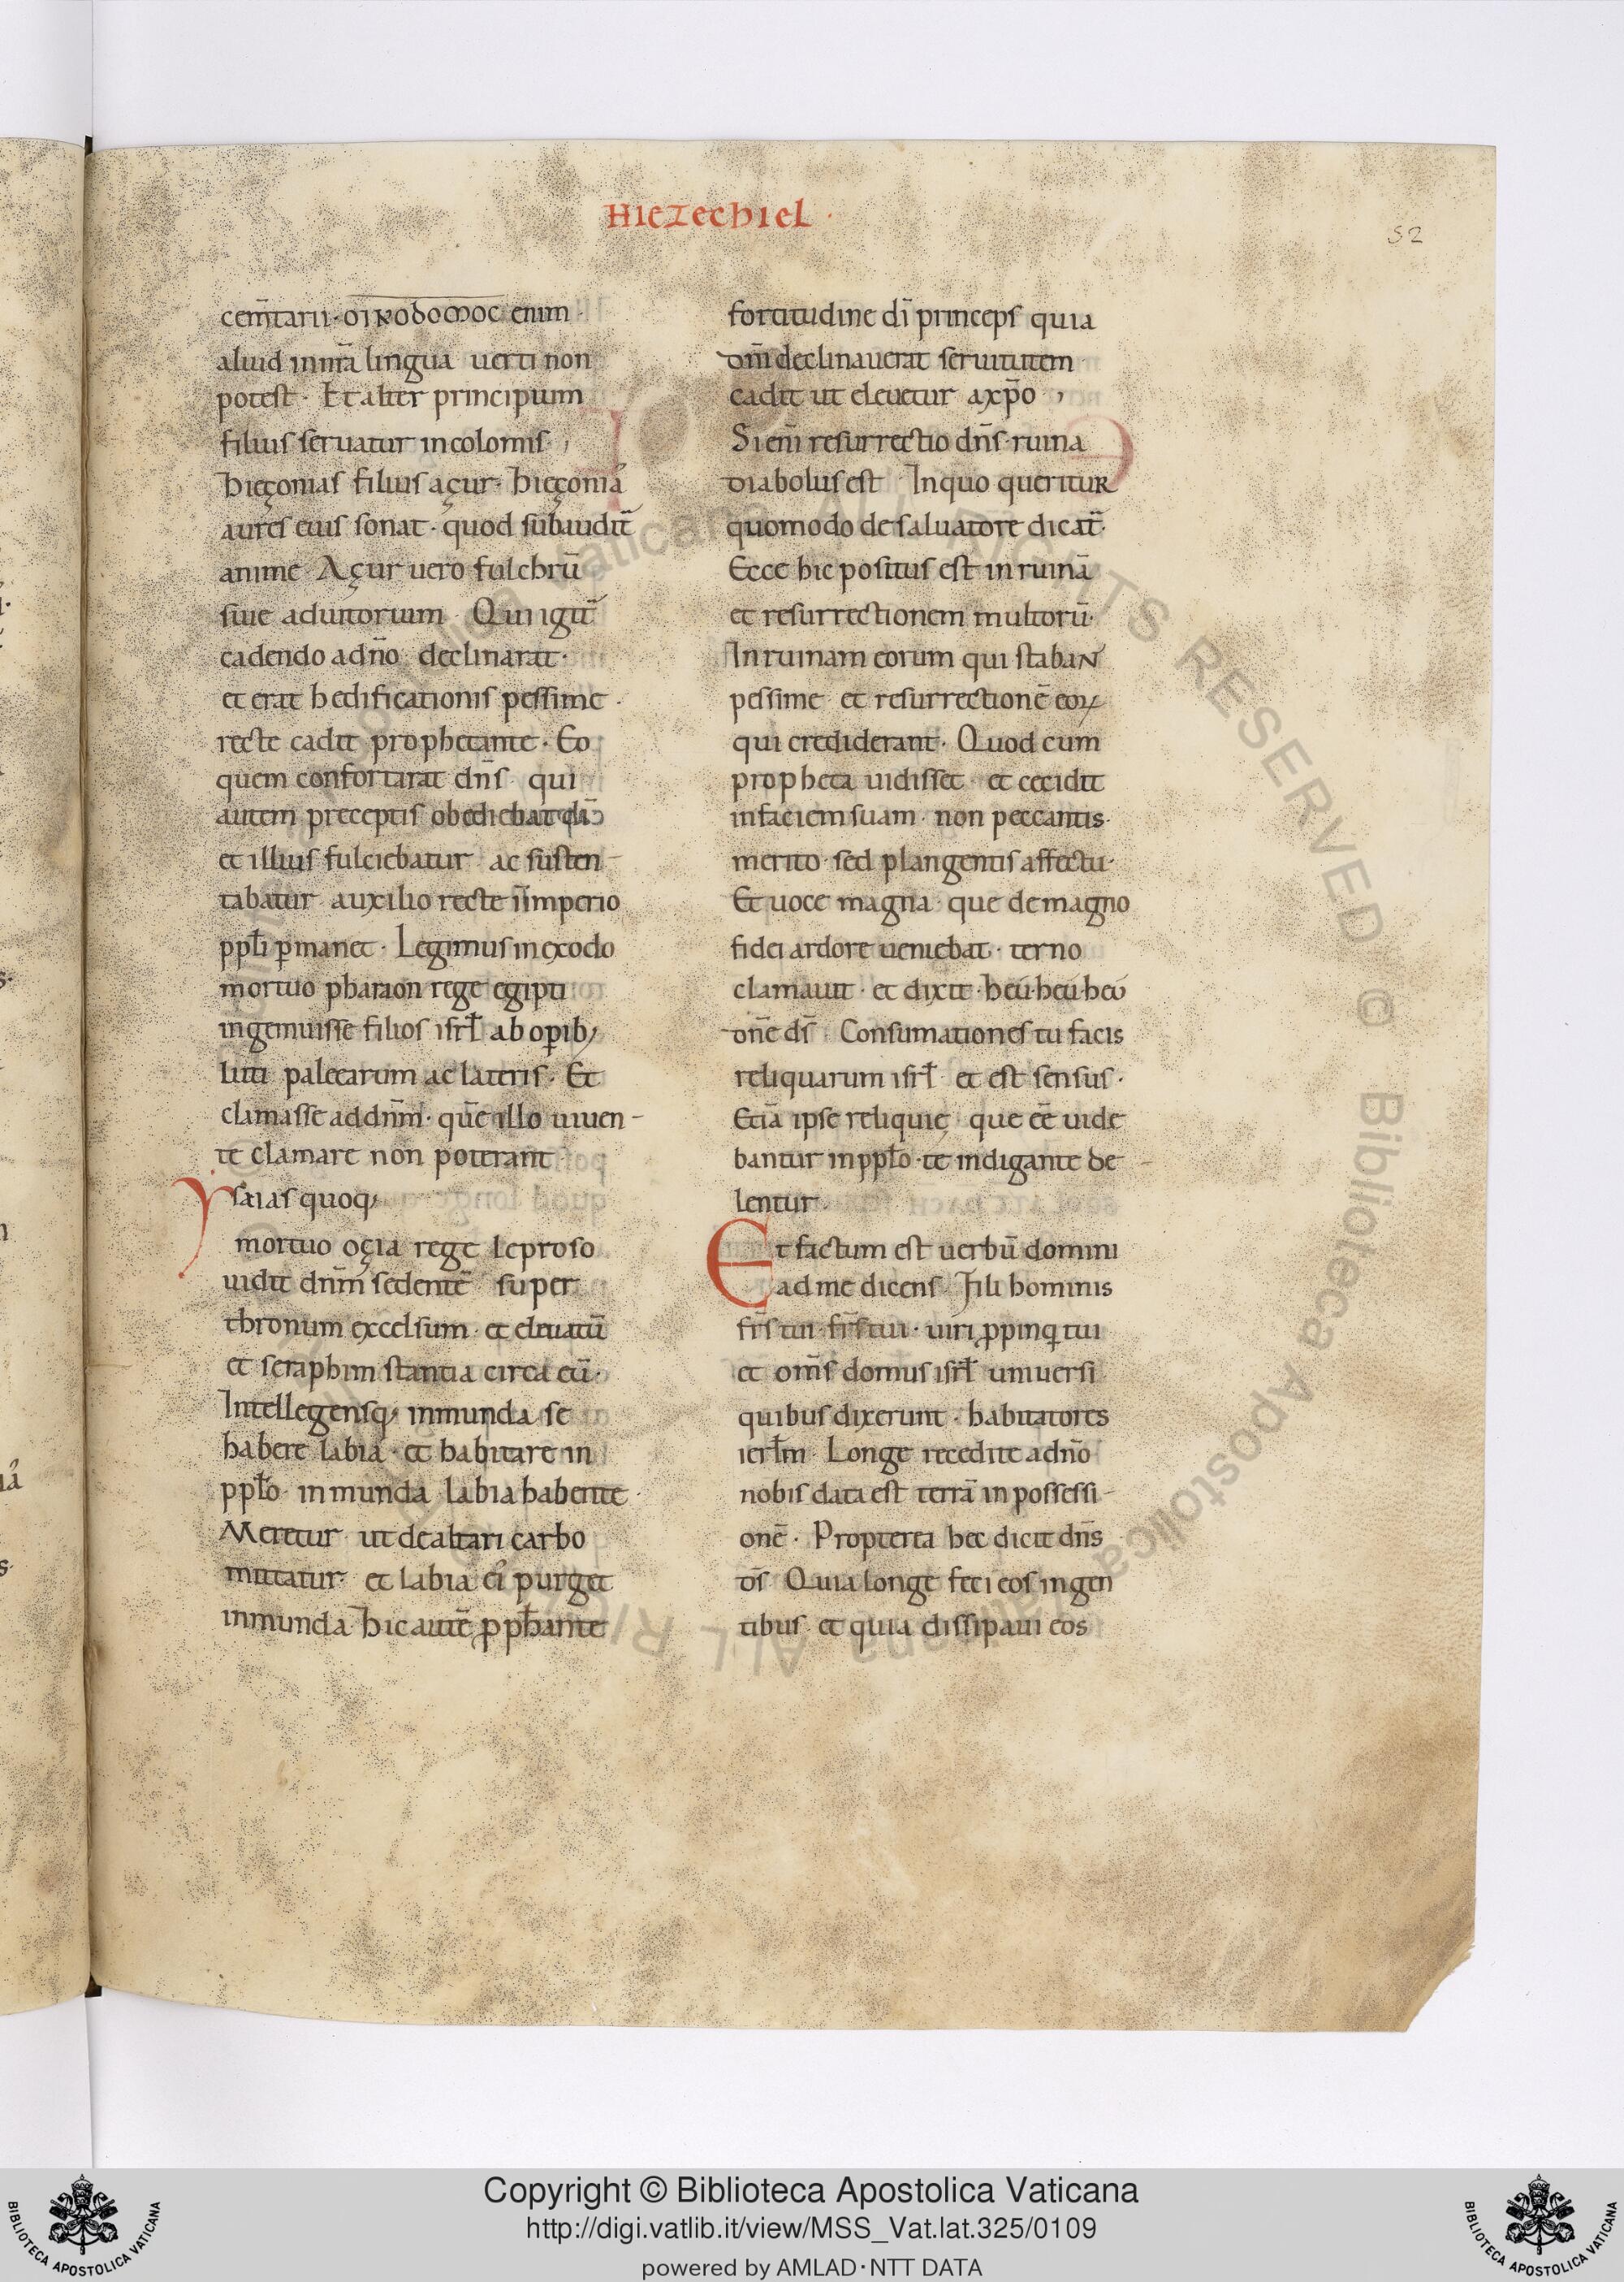 HIEZECHIEL ·
52
cem̄tarii · οικοδομος enim ·
aliud in nr̄a lingua uerti non
potest · Et alter principum
filius seruatur incolomis ·
hieçonias filius açur · hieçonia᾽
aures eius sonat · quod subaudit̄
anime · Açur uero fulchrū
siue adiutorium · Qui igit̄
cadendo adn̄o declinarat ·
et erat hedificationis pessime ·
recte cadit prophetante · Eo
quem confortarat dn̄s · qui
autem preceptis obediebat dī
et illius fulciebatur · ac susten-
tabatur auxilio recte ī imperio
ppl̄i ꝑmanet · Legimus in exodo
mortuo pharaon rege egipti
ingemuisse filios isrl̄ ab oꝑib;
luti palearum ac lateris · Et
clamasse ad dn̄m · quē illo uiuen-
te clamare non poterant
Ysaias quoq;
mortuo oçia rege leproso
uidit dn̄m sedentē super
thronum excelsum · et eleuatū
et seraphim stantia circa eū ·
Intellegensq; inmunda se
habere labia · et habitare in
ppl̄o · inmunda labia habente ·
Meretur ut de altari carbo
mittatur · et labia ei᾽ purget
inmunda · hic autē ꝓph̄ante
fortitudine dī princeps quia
dm̄ declinauerat seruitutem
cadit ut eleuetur a xp̄o ·
Si enī resurrectio dn̄s · ruina
diabolus est · In quo queritur
quomodo de saluatore dicat̄ ·
Ecce hic positus est in ruinā
et resurrectionem multorū ·
In ruinam eorum qui staban̄
pessime · et resurrectionē eoꝝ
qui crediderant · Quod cum
propheta uidisset · et cecidit
in faciem suam · non peccantis ·
merito · sed plangentis affectu ·
Et uoce magna · que de magno
fidei ardore ueniebat · terno
clamauit · et dixit · heu · heu · heu
dn̄e ds̄ · Consumationes tu facis
reliquarum isrl̄ · et est sensus ·
Etiā ipse reliquię · que eē uide
bantur in ppl̄o · te indigante de
lentur ·
Et factum est uerbū domini
ad me dicens · Fili hominis
fr̄s tui · fr̄s tui · uiri ꝓpinq̨ tui
et om̄s domus isrl̄ uniuersi
quibus dixerunt · habitatores
ierl̄m · Longe recedite a dn̄o
nobis data est terrā in possessi-
onē · Propterea hec dicit dn̄s
ds̄ · Quia longe feci eos in gen
tibus · et quia dissipaui eos
Copyright © Biblioteca Apostolica Vaticana
http://digi.vatlib.it/view/MSS_Vat.lat.325/0109
powered by AMLAD·NTT DATA